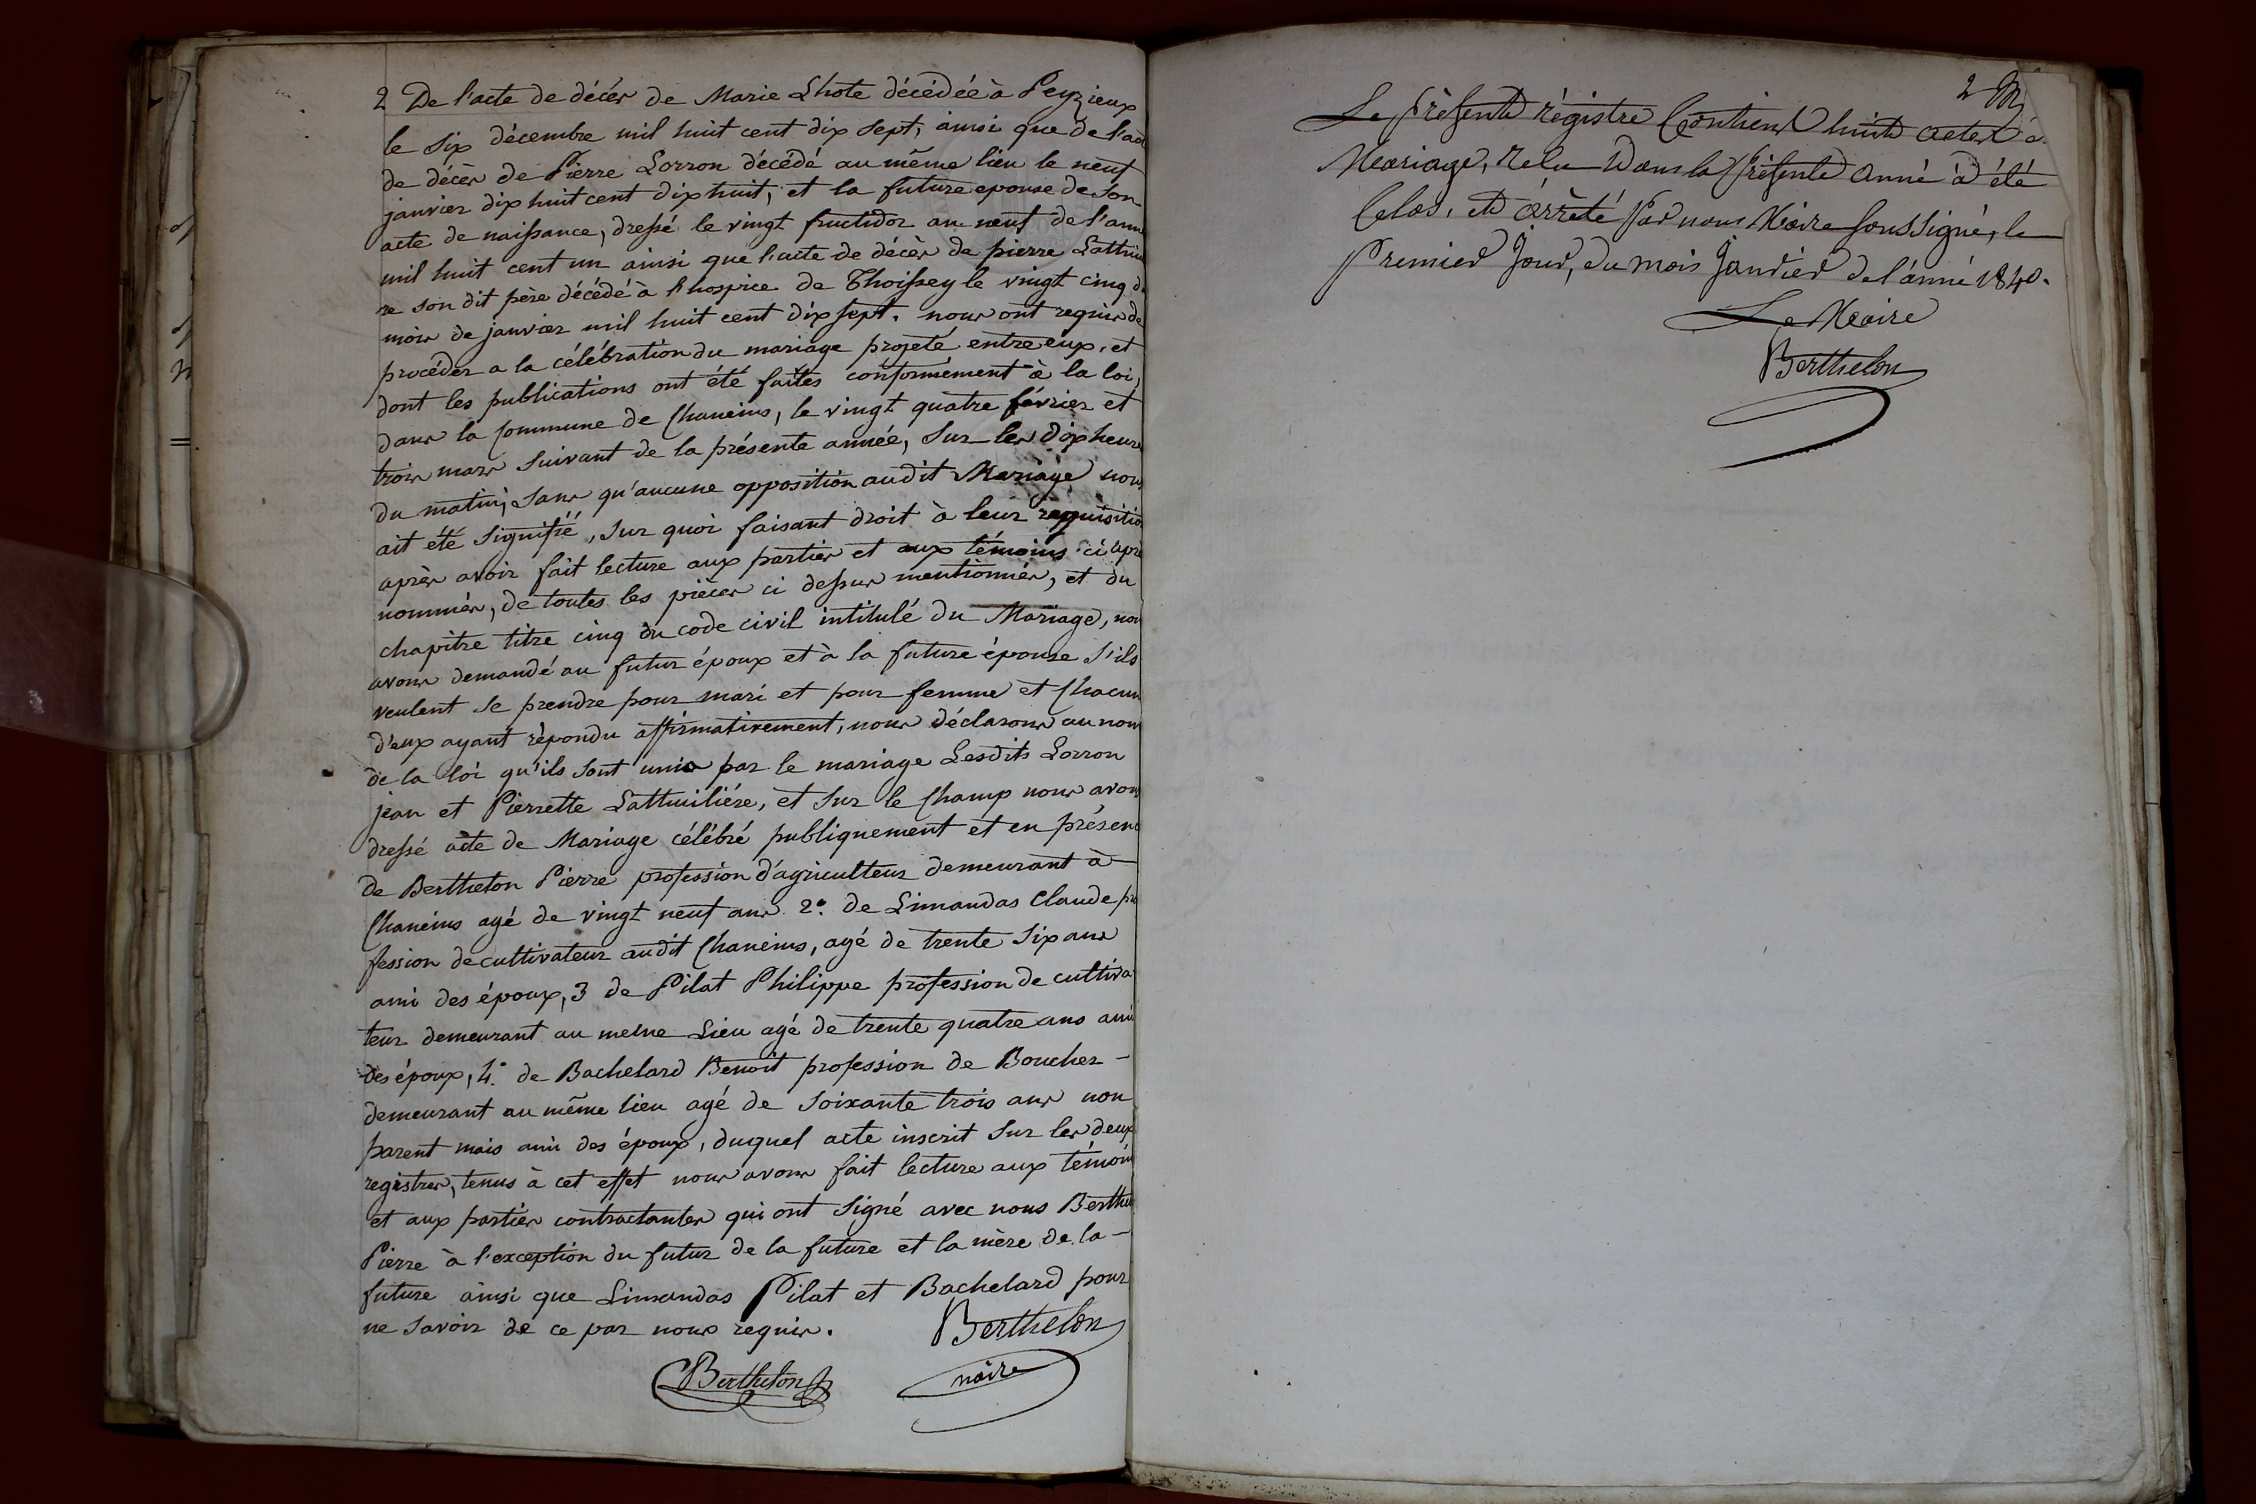 2 De l'acte de décès de Marie Lhote décédée à Peyzieux
le six décembre mil huit cent dix sept, ainsi que de l'act
de décès de Pierre Lorron décédé au même lieu le neuf
janvier dix huit cent dix huit, et la future epouse de son
acte de naissance, dressé le vingt fructidor an neuf de l'ann
mil huit cent un ainsi que l'acte de décès de pierre Lattui
re son dit père décédé à l'hospice de Thoissey le vingt cinq d
mois de janvier mil huit cent dix sept. nous ont requis de
procéder a la célébration du mariage projeté entre eux, et
dont les publications ont été faites conformément à la loi,
dans la Commune de Chaneins, le vingt quatre février et
trois mars suivant de la présente année, sur les dix heures
du matin, sans qu'aucune opposition audit Mariage nous
ait été signifié, sur quoi faisant droit à leur requisitio
après avoir fait lecture aux parties et aux témoins ci apré
nommés, de toutes les pièces ci dessus mentionnées, et du
chapitre titre cinq du code civil intitulé du Mariage, nou
avons demandé au futur époux et à la future épouse s'ils
veulent se prendre pour mari et pour femme et Chacun
d'eux ayant répondu affirmativement, nous déclarons au nom
de la loi qu'ils sont unis par le mariage Lesdits Lorron
jean et Pierrette Lattuiliére, et sur le Champ nous avons
dressé acte de Mariage célébré publiquement et en présenc
de Berthelon Pierre profession d'agriculteur demeurant à
Chaneins agé de vingt neuf ans 2.° de Limandas Claude pro
fession de cultivateur audit Chaneins, agé de trente six ans
ami des époux, 3 de Pilat Philippe profession de cultiva
teur demeurant au meme Lieu agé de trente quatre ans ami
des époux, 4.° de Bachelard Benoit profession de Boucher -
demeurant au même lieu agé de soixante trois ans non
parent mais ami des époux, duquel acte inscrit sur les deux
registres, tenus à cet effet nous avons fait lecture aux témoin
et aux parties contractantes qui ont signé avec nous Berthel
Pierre à l'exception du futur de la future et la mère de la -
future ainsi que Limandas Pilat et Bachelard pour
ne savoir de ce par nous requis. Berthelon
Berthelon maire
2
Le présente régistre Contient huite actes d
Mariage, relu Dans la présente anné à été
Celos, et árrèté par nous Maire soussigné, le
Premier Jour, du mois Janvier de l'ánné 1840.
Le Maire
Berthelon